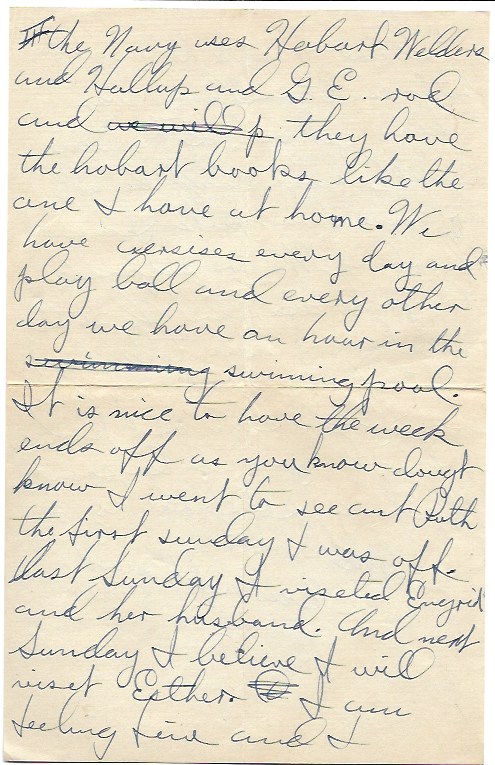 the Navy uses Hobart Welders
and Hallup and G.E. rod
and we will p they have
the hobart books like the
one I have at home. We
have exersises every day and
play ball and every other
day we have an hour in the
swimming swimming pool.
It is nice to have the week
ends off as you know dougt
know I went to see aunt Ruth
the first sunday I was off.
last Sunday I viseted Engrid
and her husband. And next
Sunday I believe I will
viset Esther. I am
feeling fine and I